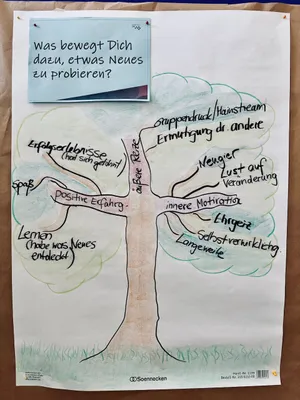 Was bewegt Dich
dazu, etwas Neues
zu probieren?
Gruppendruck/Mainstream
Ermutigung dr. andere
äußere Reize
Erfolgserlebnisse
(hat sich gelohnt)
Neugier
Lust auf
Veränderung
Spaß
positive Erfahrg.
innere Motivation
Ehrgeiz
Selbstverwirklichg
Langeweile
Lernen
(habe was Neues
entdeckt)
Soennecken